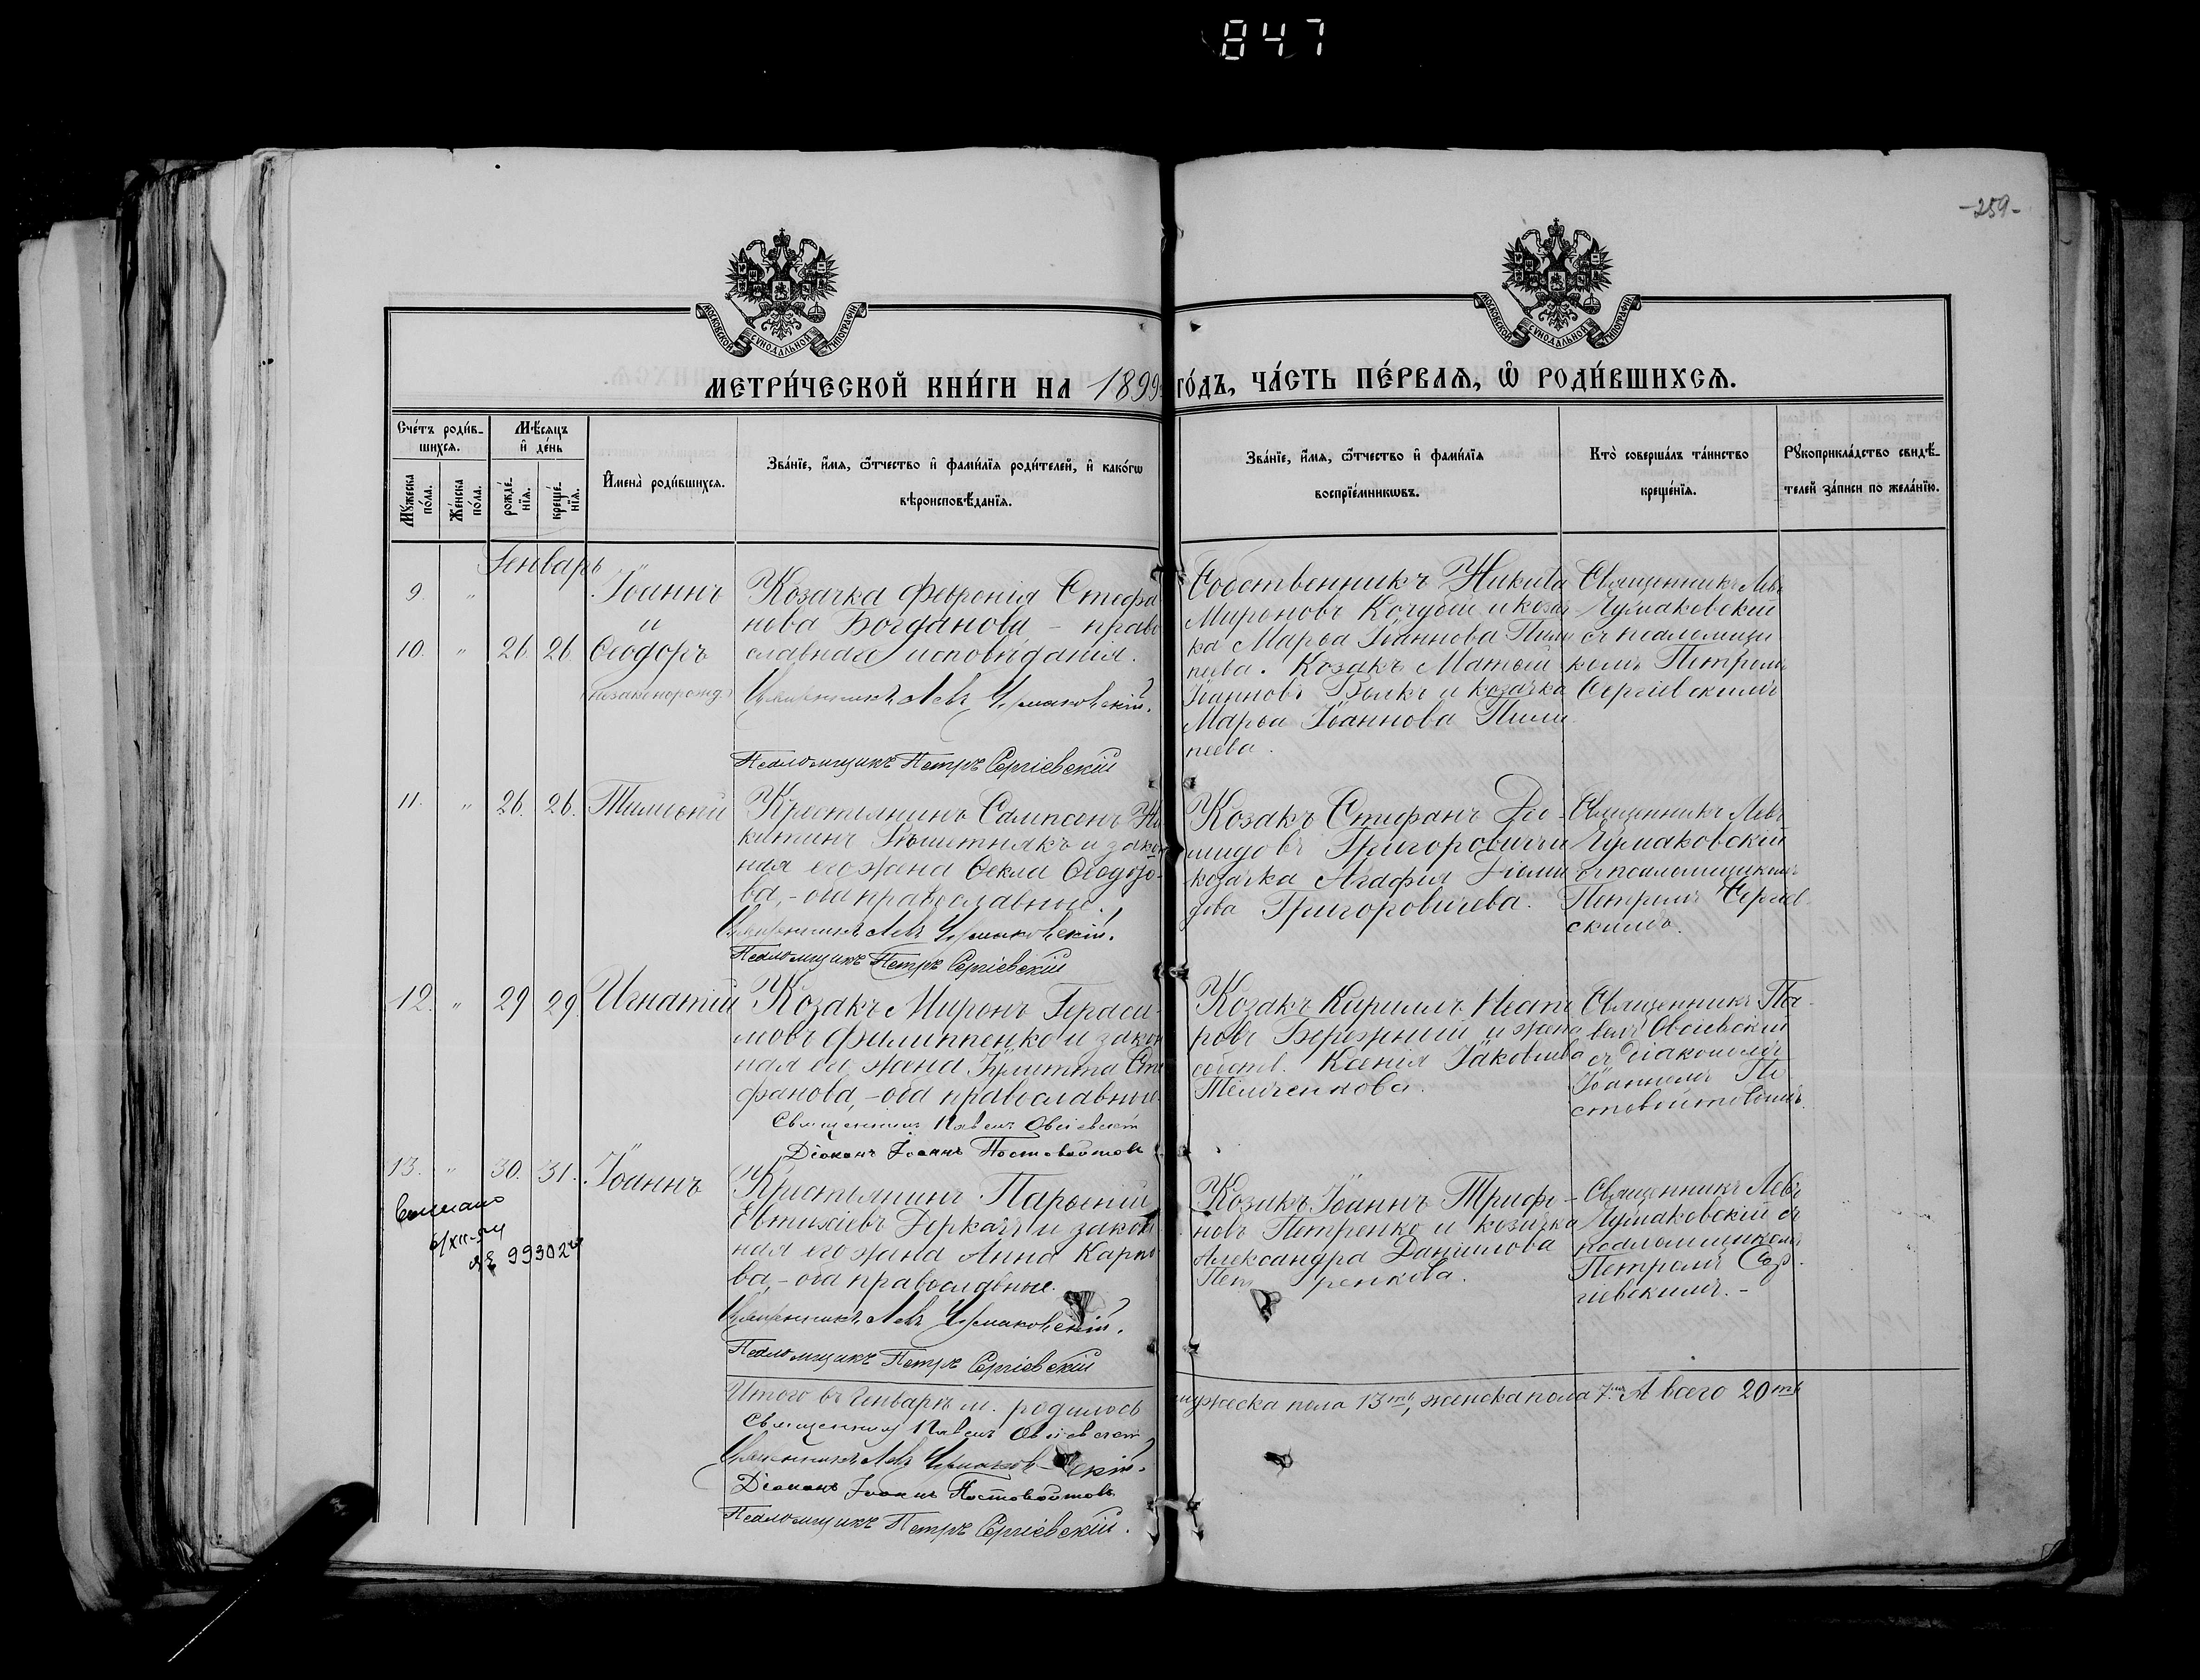 847
-259-
МОСКОВСКОЙ СѴНОДАЛЬНОЙ ТИПОГРАФІИ
МОСКОВСКОЙ СѴНОДАЛЬНОЙ ТИПОГРАФІИ
МЕТРИ́ЧЕСКОЙ КНИ́ГИ НА 1899 ГО́ДЪ, ЧА́СТЬ ПЕ́РВАѦ, Ѡ҆ РОДИ́ВШИХСѦ.
Сче́тъ роди́в-
шихсѧ.
Мѣ́сѧцъ
и҆ де́нь
Мꙋ́жеска по́ла.
Же́нска по́ла.
рожде́-нїѧ.
креще́-нїѧ.
И҆мена̀ роди́вшихсѧ.
Зва́нїе, и҆́мѧ, ѻ҆́тчество и҆ фами́лїѧ роди́телей, и҆ како́гѡ
вѣроисповѣ́данїѧ.
Зва́нїе, и҆́мѧ, ѻ҆́тчество и҆ фами́лїѧ
воспрїе́мникѡвъ.
Кто̀ соверша́лъ та́инство
креще́нїѧ.
Рꙋкоприкла́дство свидѣ́-
телей за́писи по жела́нїю.
Генварь
9. " Іоаннъ
и
10. " 26. 26. Ѳеодоръ
(незаконорожд.)
Козачка Февронія Стефа
нова Богданова - право
славнаго исповѣданія.
Священникъ Левъ Чумаковскій.
Псаломщикъ Петръ Сергіевскій
Собственникъ Никита
Мироновъ Кочубей и козач
ка Марѳа Іоаннова Пили
пива. Козакъ Матѳей
Іоанновъ Волкъ и козачка
Марѳа Іоаннова Пили
пева.
Священникъ Левъ
Чумаковскій
съ псаломщи
комъ Петромъ
Сергіевскимъ
11. " 26. 26. Тимоѳей
Крестьянинъ Сампсонъ Ни
китинъ Рѣшетнякъ и закон
ная его жена Ѳекла Ѳеодоро-
ва, - оба православные.
Священникъ Левъ Чумаковскій.
Псаломщикъ Петръ Сергіевскій
Козакъ Стефанъ Діо-
мидовъ Григоровичъ и
козачка Агафія Діоми
дова Григоровичева.
Священникъ Левъ
Чумаковскій
съ псаломщикомъ
Петромъ Сергіев-
скимъ.
12. " 29 29. Игнатій
Козакъ Миронъ Гераси-
мовъ Филиппенко и закон
ная его жена Іулитта Сте
фанова, - оба православные
Священникъ Павелъ Овсіевскій
Діаконъ Іоаннъ Постовойтовъ
Козакъ Кириллъ Неста
ровъ Бережный и жена
собств. Ксенія Іаковлева
Темченкова.
Священникъ Па-
велъ Овсіевскій
съ діакономъ
Іоанномъ По
стовойтовымъ.
13. " 30. 31. Іоаннъ
№ 993024
Крестьянинъ Парѳеній
Евтихіевъ Деркачъ и закон
ная его жена Анна Карпо
ва, - оба православные.
Священникъ Левъ Чумаковскій.
Псаломщикъ Петръ Сергіевскій
Козакъ Іоаннъ Трифо-
новъ Петренко и козачка
Александра Даніилова
Пет ренкова.
Священникъ Левъ
Чумаковскій съ
псаломщикомъ
Петромъ Сер-
гіевскимъ. -
Итого въ Генварѣ м. родилось мужеска пола 13ть, женска пола 7мь А всего 20ть
Священникъ Павелъ Овсіевскій
Священникъ Левъ Чумаковскій.
Діаконъ Іоаннъ Постовойтовъ
Псаломщикъ Петръ Сергіевскій.